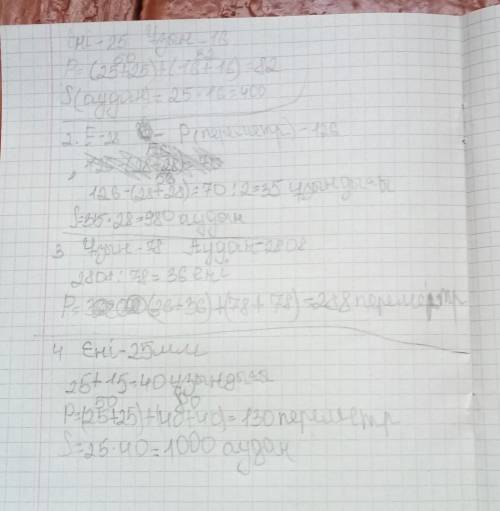 Ені-25 Ұзын-16
50 32
P=(25+25)+(16+16)=82
S(аудан)=25·16=400
2. Е-28 - P(периметр)-126
56
126-(28+28)=70:2=35 ұзындығы
S=35·28=980 аудан
3 Ұзын-78 Аудан-2808
2808:78=36 ені
P= (36+36)+(78+78)=228 периметр
4 Ені-25мм
25+15=40 ұзындығы
50 80
P=(25+25)+(40+40)=130 периметр
S=25·40=1000 аудан